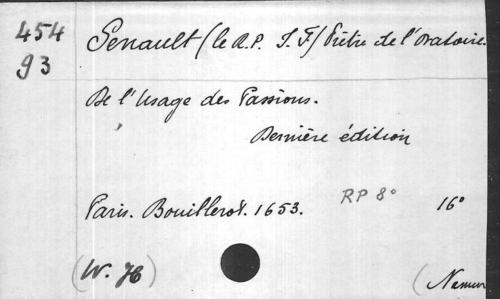 454 Senault (le R.P. J. F) Prêtre de l'Oratoire.
93
De l'Usage des Passions.
Dernière édition
Paris. Bouillerot. 1653. RP 8° 16°
(W. H) (Namur